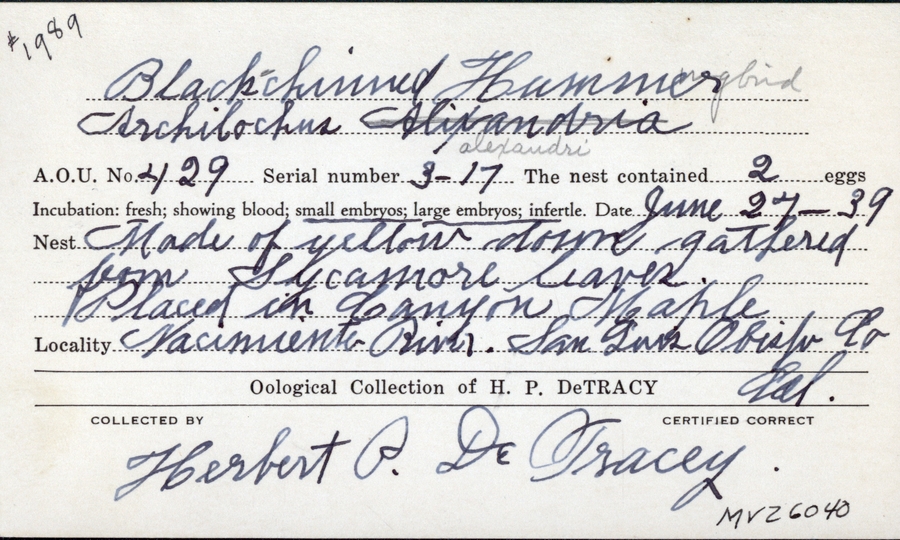 #1989
Black-chinned Hummer ngbird
Archilochus Alixandria
alexandri
A.O.U. No. 429 Serial number 3-17 The nest contained 2 eggs
Incubation: fresh; showing blood; small embryos; large embryos; infertle. Date June 27-39
Nest Made of yellow down gathered
from Sycamore leaves.
Placed in Canyon Maple
Locality Nacimiento River. San Luis Obispo Co
Cal.
Oological Collection of H. P. DeTRACY
COLLECTED BY CERTIFIED CORRECT
Herbert P. De Tracey.
MVZ6040